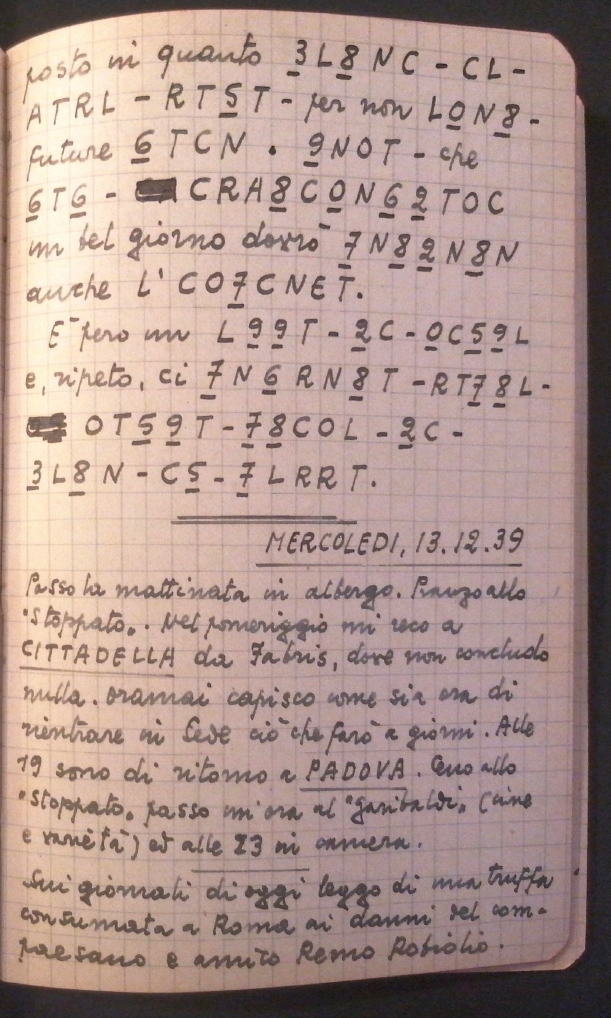 posto in quanto 3L8NC - CL -
ATRL - RT5T - per non L0N8 -
future 6TCN . 9NOT - che
6T6 - CRA8CON62TOC
un bel giorno dovrò 7N82N8N
anche l' CO7CNET.
E' pero un L99T - 2C - 0C59L
e, ripeto, ci 7N6RN8T - RT78L -
OT59T - 78COL - 2C -
3L8N - C5 - 7LRRT.
MERCOLEDI, 13.12.39
Passo la mattinata in albergo. Pranzo allo
"Stoppato". Nel pomeriggio mi reco a
CITTADELLA da Fabris, dove non concludo
nulla. Oramai capisco come sia ora di
rientrare in Sede ciò che farò a giorni. Alle
19 sono di ritorno a PADOVA. Ceno allo
"Stoppato", passo un'ora al "Garibaldi", (cine
e varietà) ed alle 23 in camera.
Sui giornali di oggi leggo di una truffa
consumata a Roma ai danni del com-
paesano e amico Remo